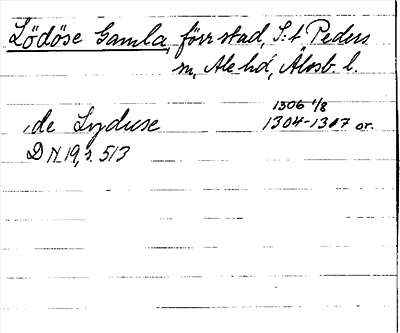 Lödöse Gamla, förr stad, S:t Peders
sn, Ale hd, Älvsb. l.
1306 1/8
de Lyduse 1304-1307 or.
DN 19, s. 513